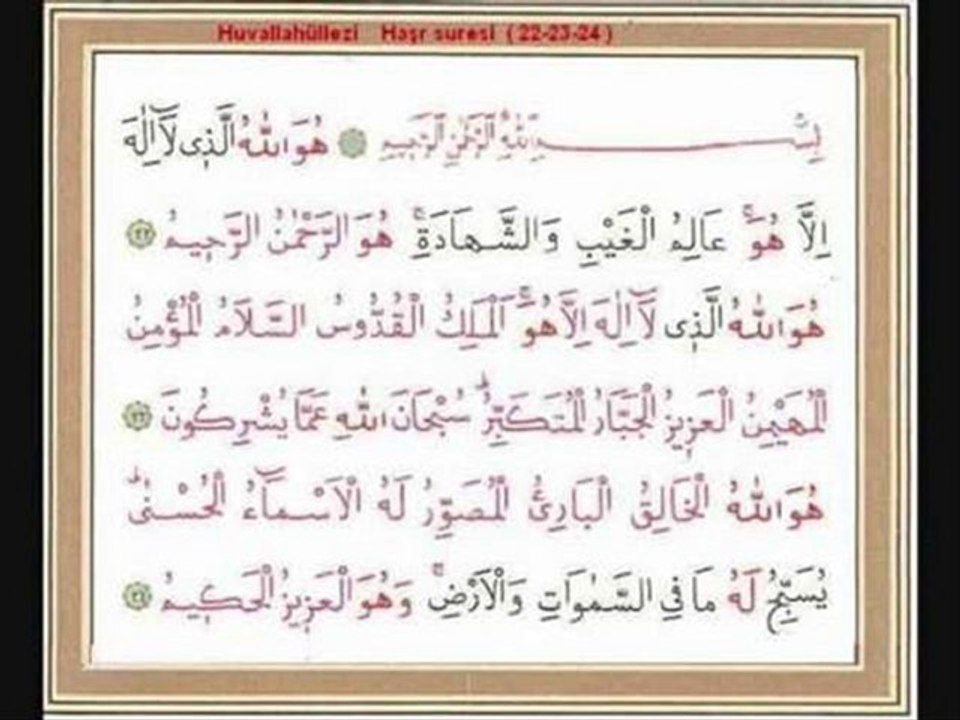 Huvallahüllezi Haşr suresi ( 22-23-24 )
بِسْمِ اللّٰهِ الرَّحْمٰنِ الرَّحِيمِ هُوَ اللّٰهُ الَّذِى لَٓا اِلٰهَ
اِلَّا هُوَۚ عَالِمُ الْغَيْبِ وَالشَّهَادَةِۚ هُوَ الرَّحْمٰنُ الرَّحِيمُ ﴿٢٢﴾
هُوَ اللّٰهُ الَّذِى لَٓا اِلٰهَ اِلَّا هُوَۚ اَلْمَلِكُ الْقُدُّوسُ السَّلَامُ الْمُؤْمِنُ
الْمُهَيْمِنُ الْعَزِيزُ الْجَبَّارُ الْمُتَكَبِّرُۜ سُبْحَانَ اللّٰهِ عَمَّا يُشْرِكُونَ ﴿٢٣﴾
هُوَ اللّٰهُ الْخَالِقُ الْبَارِئُ الْمُصَوِّرُ لَهُ الْاَسْمَٓاءُ الْحُسْنٰىۜ
يُسَبِّحُ لَهُ مَا فِى السَّمٰوَاتِ وَالْاَرْضِۚ وَهُوَ الْعَزِيزُ الْحَكِيمُ ﴿٢٤﴾